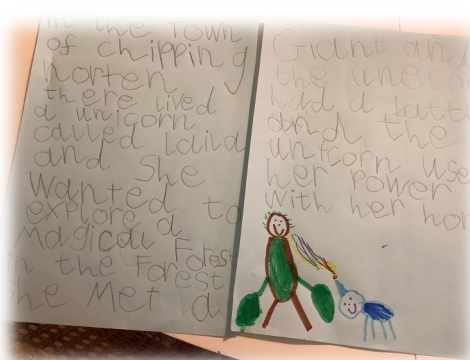 in the Town
of chipping
norten
there lived
a unicorn
called Laila
and She
Wanted to
explore a
Magical Forest
in the Forest
She Met a
Giant and
the
had a
and the
unicorn use
her power
with her